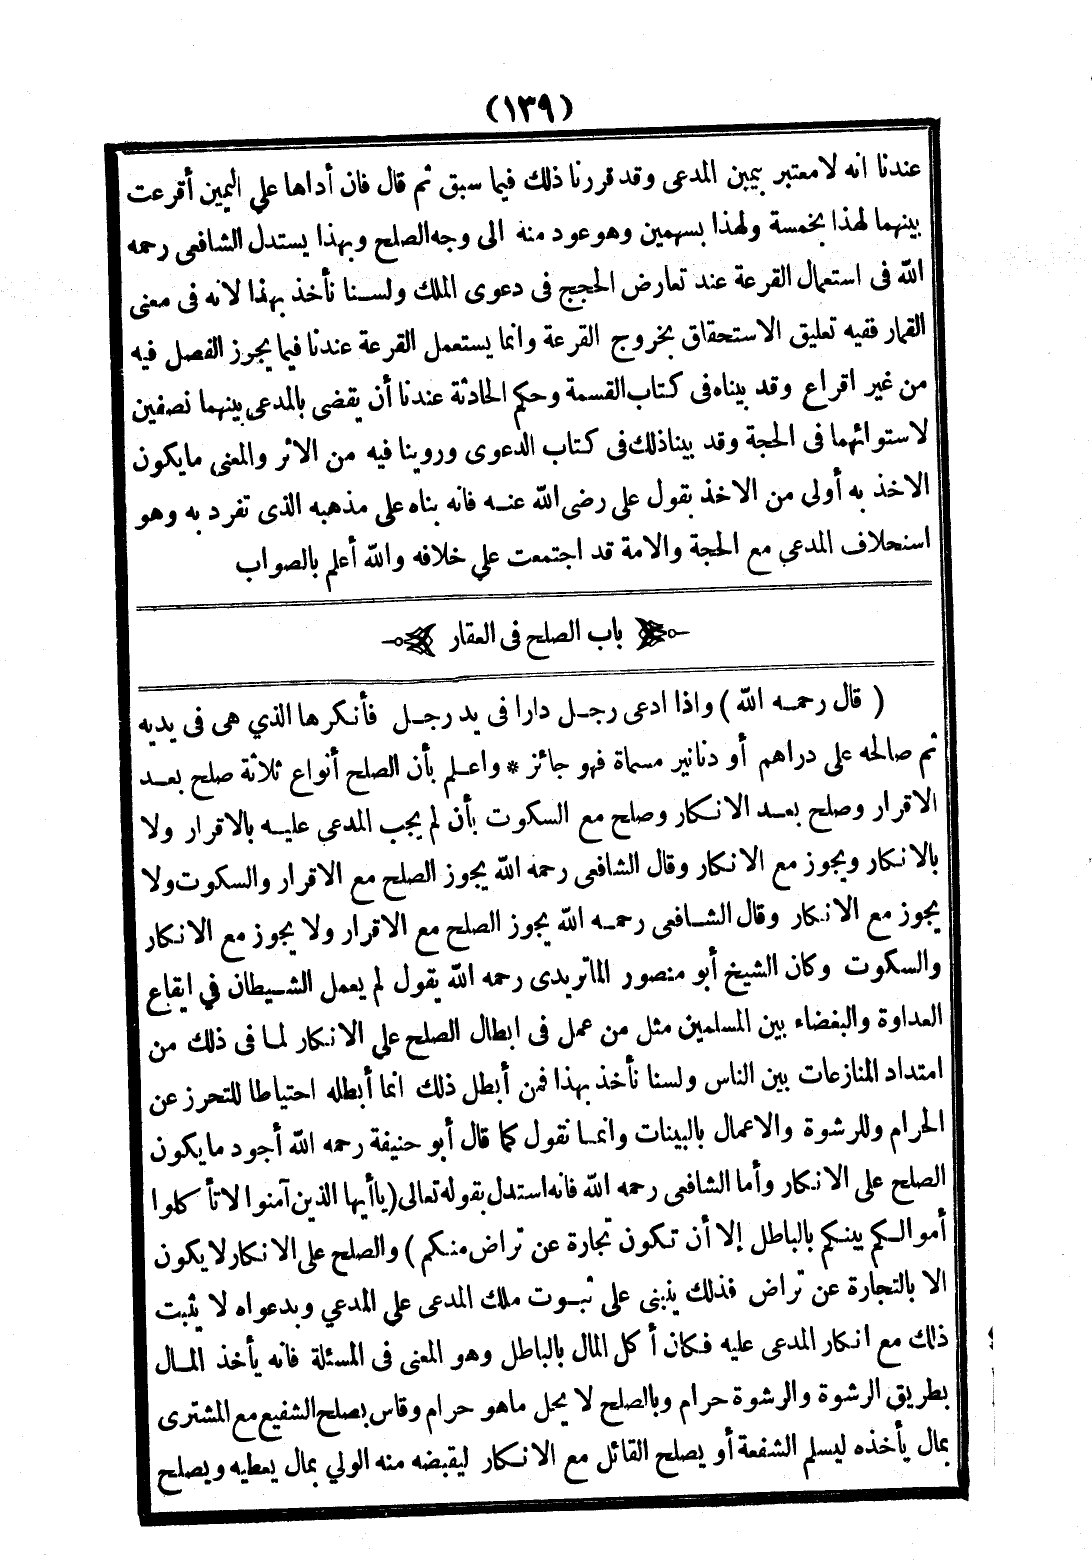 (١٣٩)
عندنا انه لامعتبر بيمين المدعى وقد قررنا ذلك فيما سبق ثم قال فان أداها علي اليمين أقرعت
بينهما لهذا بخمسة ولهذا بسهمين وهو عود منه الى وجه الصلح وبهذا يستدل الشافعى رحمه
الله فى استعمال القرعة عند تعارض الحجج فى دعوى الملك ولسنا نأخذ بهذا لانه فى معنى
القمار ففيه تعليق الاستحقاق بخروج القرعة وانما يستعمل القرعة عندنا فيما يجوز الفصل فيه
من غير اقراع وقد بيناه فى كتاب القسمة وحكم الحادثة عندنا أن يقضى بالمدعى بينهما نصفين
لاستوائهما فى الحجة وقد بينا ذلك فى كتاب الدعوى وروينا فيه من الاثر والمعنى ما يكون
الاخذ به أولى من الاخذ بقول على رضى الله عنه فانه بناه على مذهبه الذى تفرد به وهو
استحلاف المدعي مع الحجة والامة قد اجتمعت علي خلافه والله أعلم بالصواب
باب الصلح فى العقار
( قال رحمه الله ) واذا ادعى رجل دارا فى يد رجل فأنكرها الذي هى فى يديه
ثم صالحه على دراهم أو دنانير مسماة فهو جائز * واعلم بأن الصلح أنواع ثلاثة صلح بعد
الاقرار وصلح بعد الانكار وصلح مع السكوت بأن لم يجب المدعى عليه بالاقرار ولا
بالانكار ويجوز مع الانكار وقال الشافعى رحمه الله يجوز الصلح مع الاقرار والسكوت ولا
يجوز مع الانكار وقال الشافعى رحمه الله يجوز الصلح مع الاقرار ولا يجوز مع الانكار
والسكوت وكان الشيخ أبو منصور الماتريدى رحمه الله يقول لم يعمل الشيطان في ايقاع
العداوة والبغضاء بين المسلمين مثل من عمل فى ابطال الصلح علي الانكار لما فى ذلك من
امتداد المنازعات بين الناس ولسنا نأخذ بهذا فمن أبطل ذلك انما أبطله احتياطا للتحرز عن
الحرام وللرشوة والاعمال بالبينات وانما نقول كما قال أبو حنيفة رحمه الله أجود ما يكون
الصلح على الانكار وأما الشافعى رحمه الله فانه استدل بقوله تعالى (ياأيها الذين آمنوا لا تأكلوا
أموالكم بينكم بالباطل إلا أن تكون تجارة عن تراض منكم ) والصلح على الانكار لا يكون
الا بالتجارة عن تراض فذلك ينبنى على ثبوت ملك المدعى علي المدعي وبدعواه لا يثبت
ذلك مع انكار المدعى عليه فكان أكل المال بالباطل وهو المعنى فى المسئلة فانه يأخذ المال
بطريق الرشوة والرشوة حرام وبالصلح لا يحل ماهو حرام وقاس بصلح الشفيع مع المشترى
بمال يأخذه ليسلم الشفعة أو يصلح القائل مع الانكار ليقبضه منه الولي بمال يعطيه ويصلح